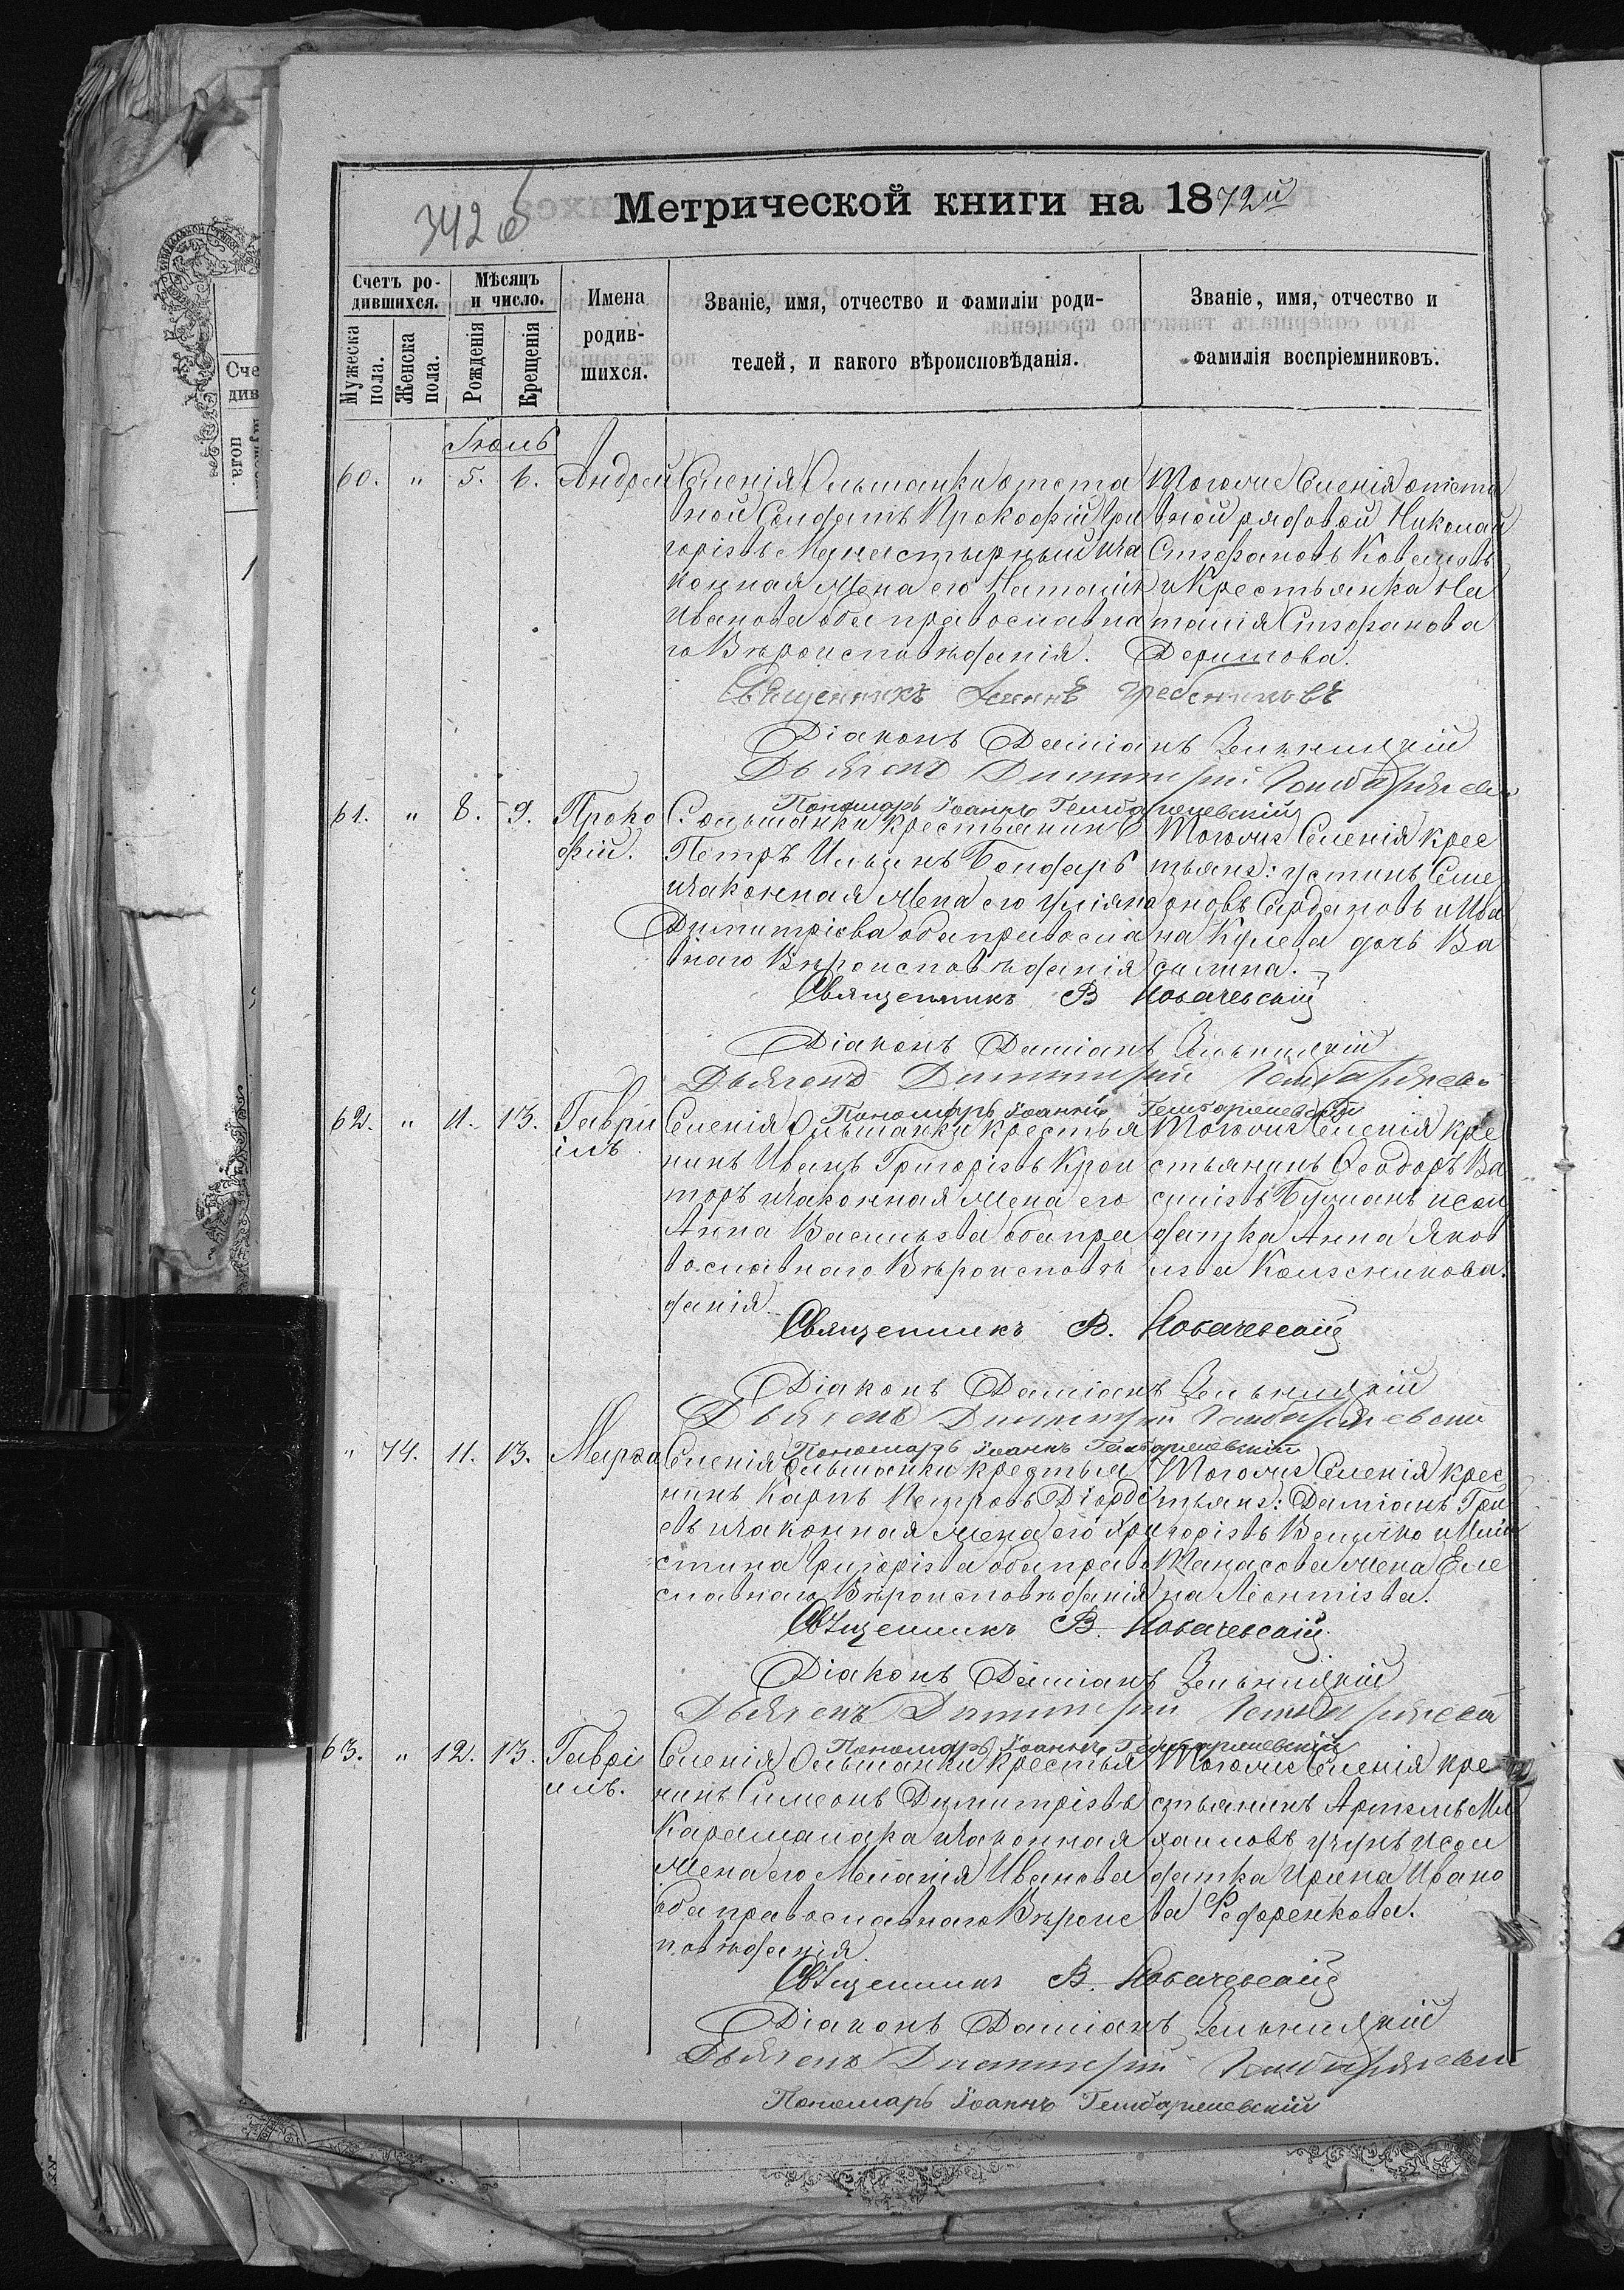 342 об
Метрической книги на 1872й
Счетъ ро-
дившихся.
Мужеска пола.
Женска пола.
Мѣсяцъ
и число.
Рожденія
Крещенія
Имена
родив-
шихся.
Званіе, имя, отчество и фамиліи роди-
телей, и какого вѣроисповѣданія.
Званіе, имя, отчество и
фамилія воспріемниковъ.
Іюль
60. " 5. 6. Андрей
Селенія Ольшанки отста
вной Солдатъ Прокофій Гри
горіевъ Манастырный и за
конная жена его Наталія
Иванова оба православна
го Вѣроисповѣданія.
Тогоже Селенія отста
вной рядовой Николай
Стефановъ
и Крестьянка На
талія Стефанова
Священникъ Іоаннъ
Діаконъ Даміанъ Зельницкій
Дьячекъ Димитрій
Пономарь Іоаннъ
61. " 8. 9. Проко
фій.
С. Ольшанки Крестьянинъ
Петръ Ильинъ Бондарь
и законная жена его Уліяна
Димитріева оба правосла
внаго Вѣроисповѣданія
Тогоже Селенія крес
тьяне: Устинъ Симе
оновъ Сардаковъ и Ива
на Кулева дочь Ва
силина.
Священникъ В Новачевскій
Діаконъ Даміанъ Зельницкій
Дьячекъ Димитрій
Пономарь Іоаннъ
62. " 11. 13. Гаври
ілъ
Селенія Ольшанки Крестья
нинъ Иванъ Григоріевъ Крои
торъ и законная жена его
Анна Васильева оба пра
вославнаго Вѣроисповѣ
данія.
Тогоже Селенія кре
стьянинъ Ѳеодоръ Ва
силіевъ и сол
датка Анна Яков
лева Колесникова.
Священникъ В. Новачевскій
Діаконъ Даміанъ Зельницкій
Дьячекъ Димитрій
Пономарь Іоаннъ
" 74. 11. 13. Марѳа
Селенія Ольшанки крестья
нинъ Карпъ Петровъ Діорді
евъ и законная жена его Хри
стина Григоріева оба право
славнаго Вѣроисповѣданія
Тогоже Селенія крес
тьяне: Даміанъ Гри
горіевъ Величко и
жена Еле
на Леонтіева.
Священникъ В. Новачевскій
Діаконъ Даміанъ Зельницкій
Дьячекъ Димитрій
Пономарь Іоаннъ
63. " 12. 13. Гаврі
илъ.
Селенія Ольшанки Крестья
нинъ Симеонъ Димитріевъ
Карамалака и законная
жена его Меланія Иванова
оба православнаго Вѣроис
повѣданія
Тогоже Селенія кре
стьянинъ Артемъ Ми
хаиловъ и сол
датка Ирина Ивано
ва Федоренкова.
Священникъ В. Новачевскій
Діаконъ Даміанъ Зельницкій
Дьячекъ Димитрій
Пономарь Іоаннъ